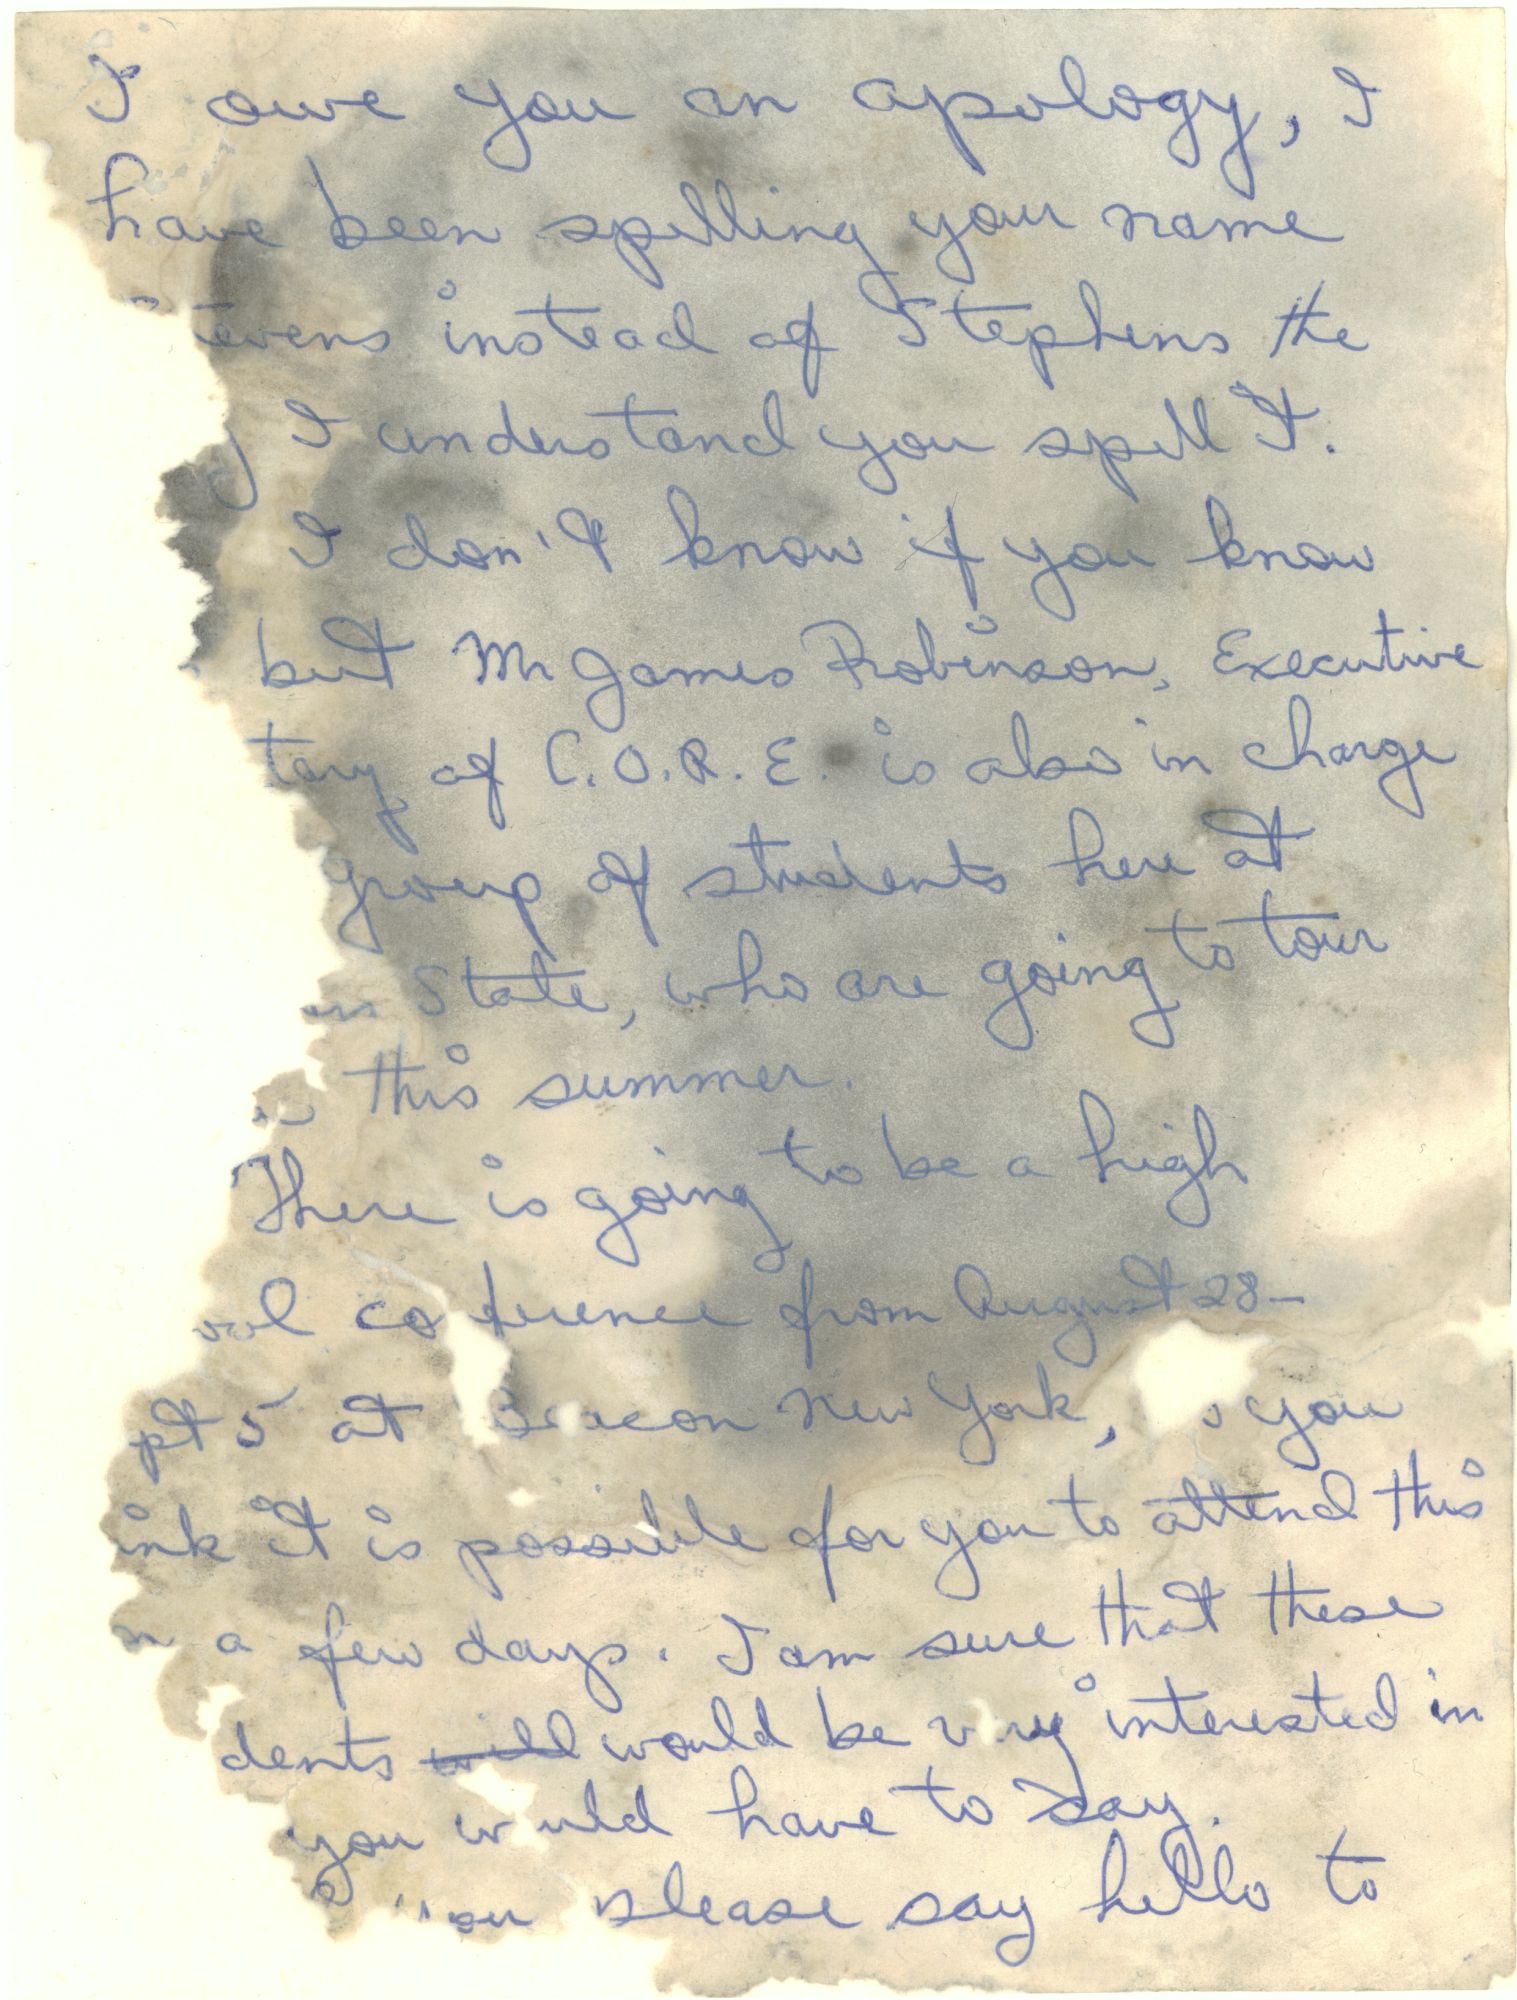 I owe you an apology, I
have been spelling your name
tevens instead of Stephens the
y I understand you spell It.
I don't know if you know
but Mr James Robinson, Executive
tary of C.O.R.E. is also in charge
group of students here at
State, who are going to tour
this summer.
There is going to be a high
ool co ference from August 28-
pt 5 at Beacon New York, you
ink it is possible for you to attend this
n a few days. I am sure that these
dents will would be very interested in
you would have to say.
please say hello to